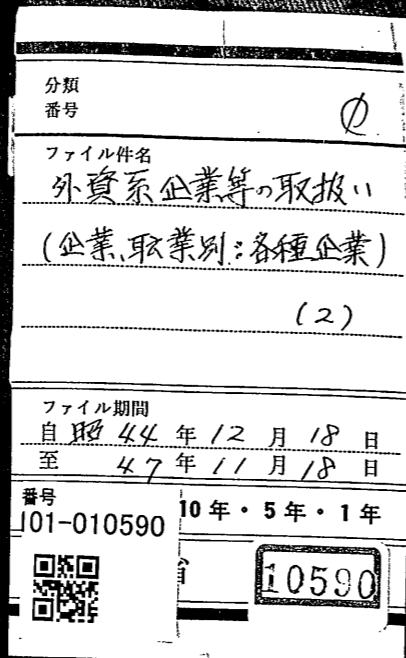 分類
番号
ファイル件名
外資系企業等の取扱い
(企業、职業別:各種企業)
(2)
ファイル期間
自 昭 44 年 12 月 18 日
至 47 年 11 月 18 日
番号
101-010590
10年・5年・1年
省
10590